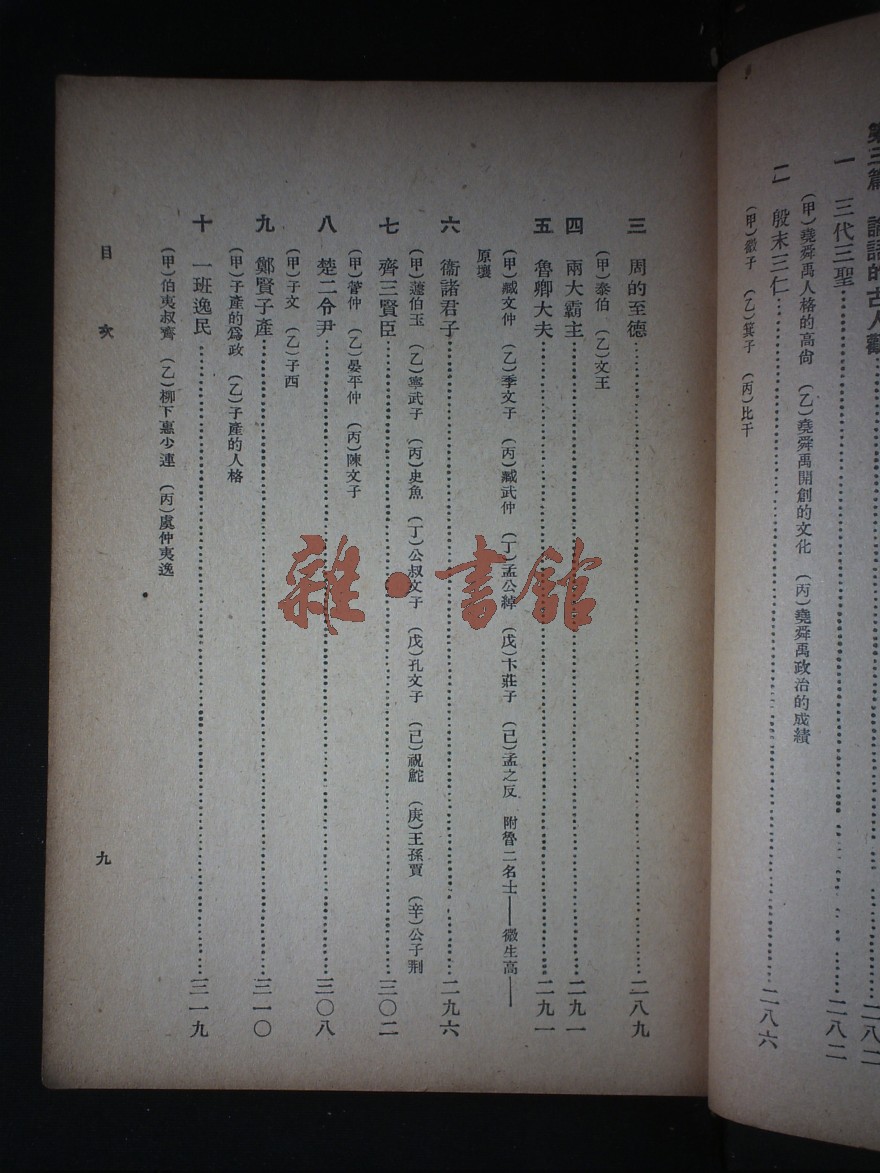 第三篇 論語的古人觀……二八二
一 三代三聖……二八二
(甲)堯舜禹人格的高尙 (乙)堯舜禹開創的文化 (丙)堯舜禹政治的成績
二 殷末三仁……二八六
(甲)微子 (乙)箕子 (丙)比干
三 周的至德……二八九
(甲)泰伯 (乙)文王
四 兩大霸主……二九一
五 魯卿大夫……二九一
(甲)臧文仲 (乙)季文子 (丙)臧武仲 (丁)孟公綽 (戊)卞莊子 (己)孟之反 附魯二名士——微生高——
原壤
六 衞諸君子……二九六
(甲)蘧伯玉 (乙)寧武子 (丙)史魚 (丁)公叔文子 (戊)孔文子 (己)祝鮀 (庚)王孫賈 (辛)公子荆
七 齊三賢臣……三〇二
(甲)管仲 (乙)晏平仲 (丙)陳文子
八 楚二令尹……三〇八
(甲)子文 (乙)子西
九 鄭賢子產……三一〇
(甲)子產的爲政 (乙)子產的人格
十 一班逸民……三一九
(甲)伯夷叔齊 (乙)柳下惠少連 (丙)虞仲夷逸
目次 九
雜·書館